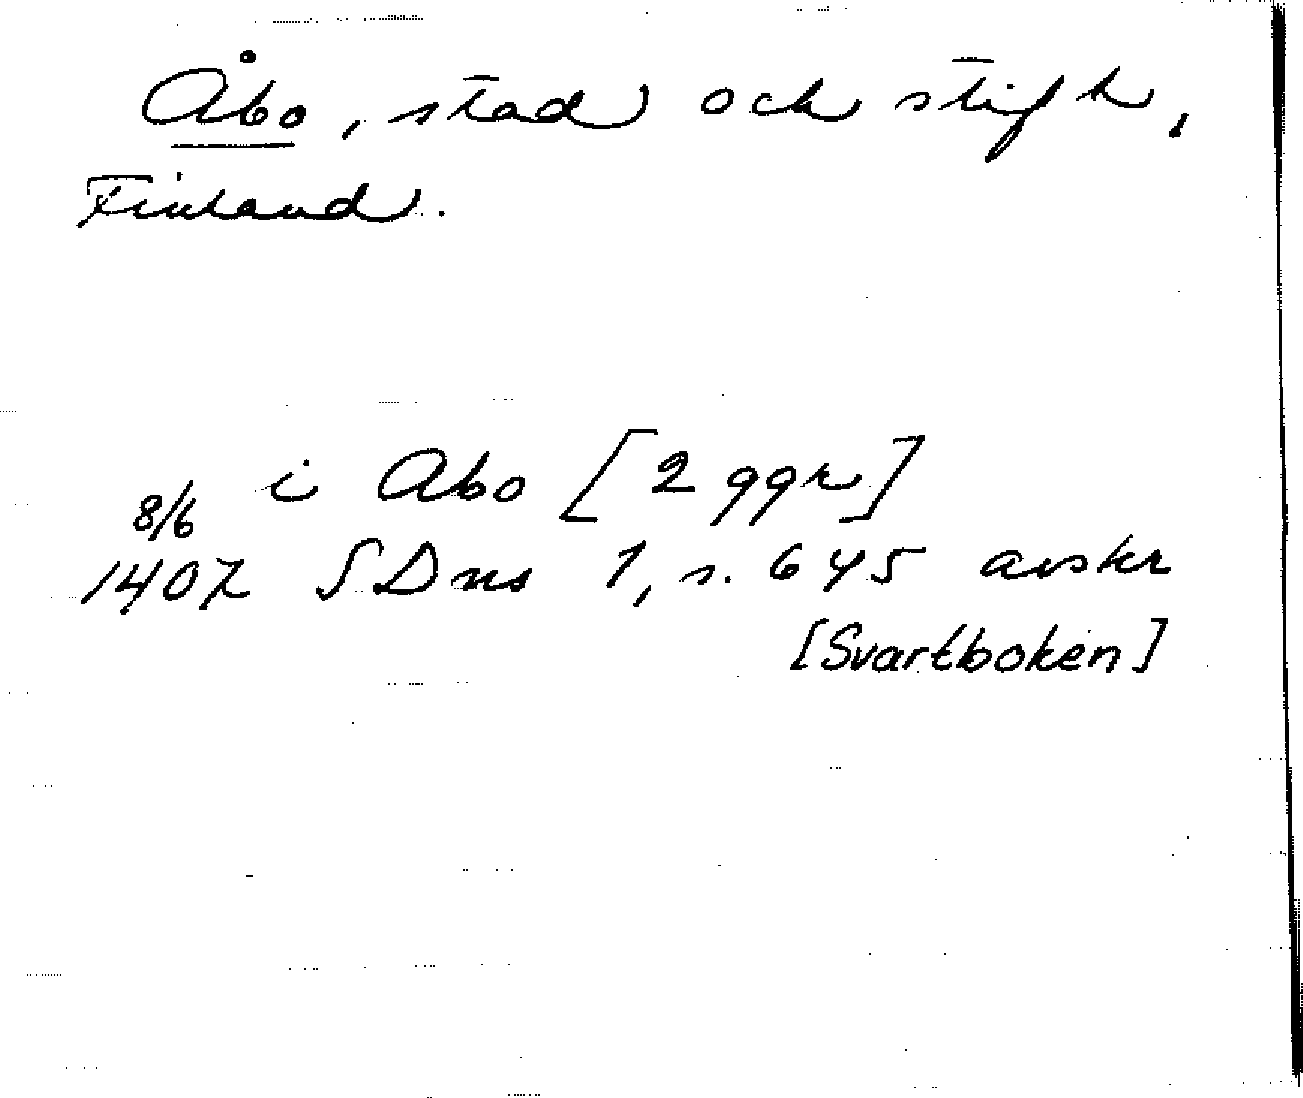 Åbo, stad och stift,
Finland.
i Abo [2 ggr]
8/6
1407 SDns 1, s. 645 avskr
[Svartboken]